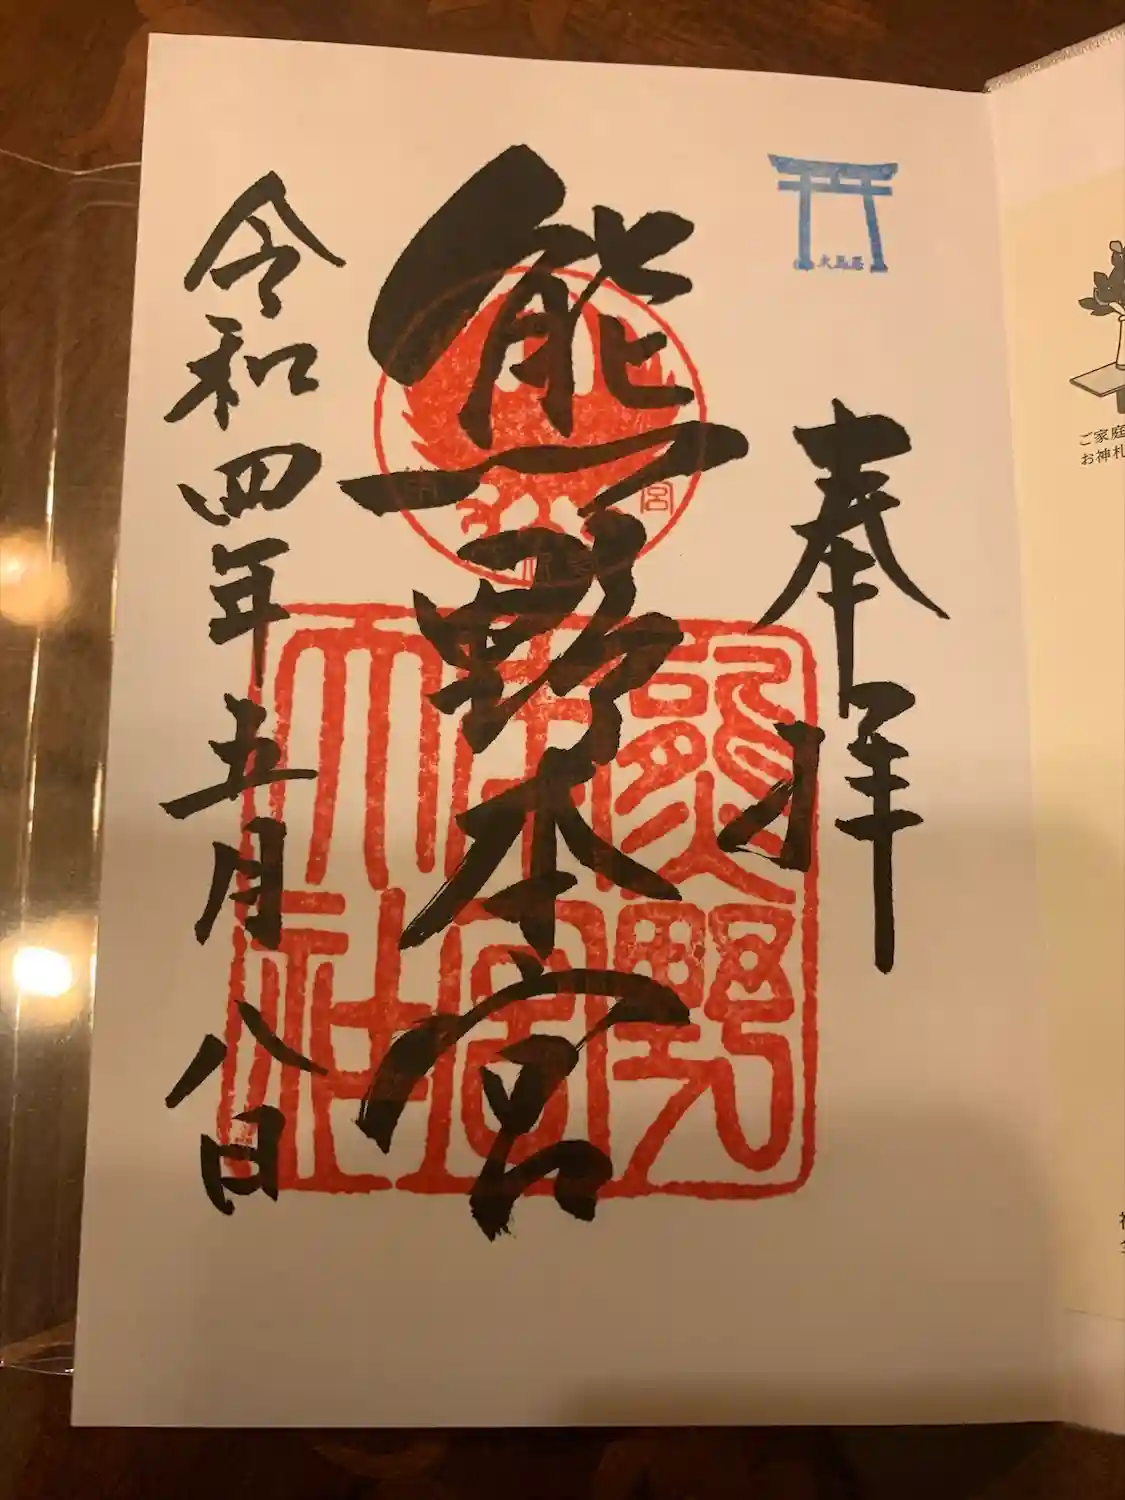 大鳥居
奉拝
熊野本宮
令和四年五月八日
宮
熊野
本宮
大社
ご家庭
お神札